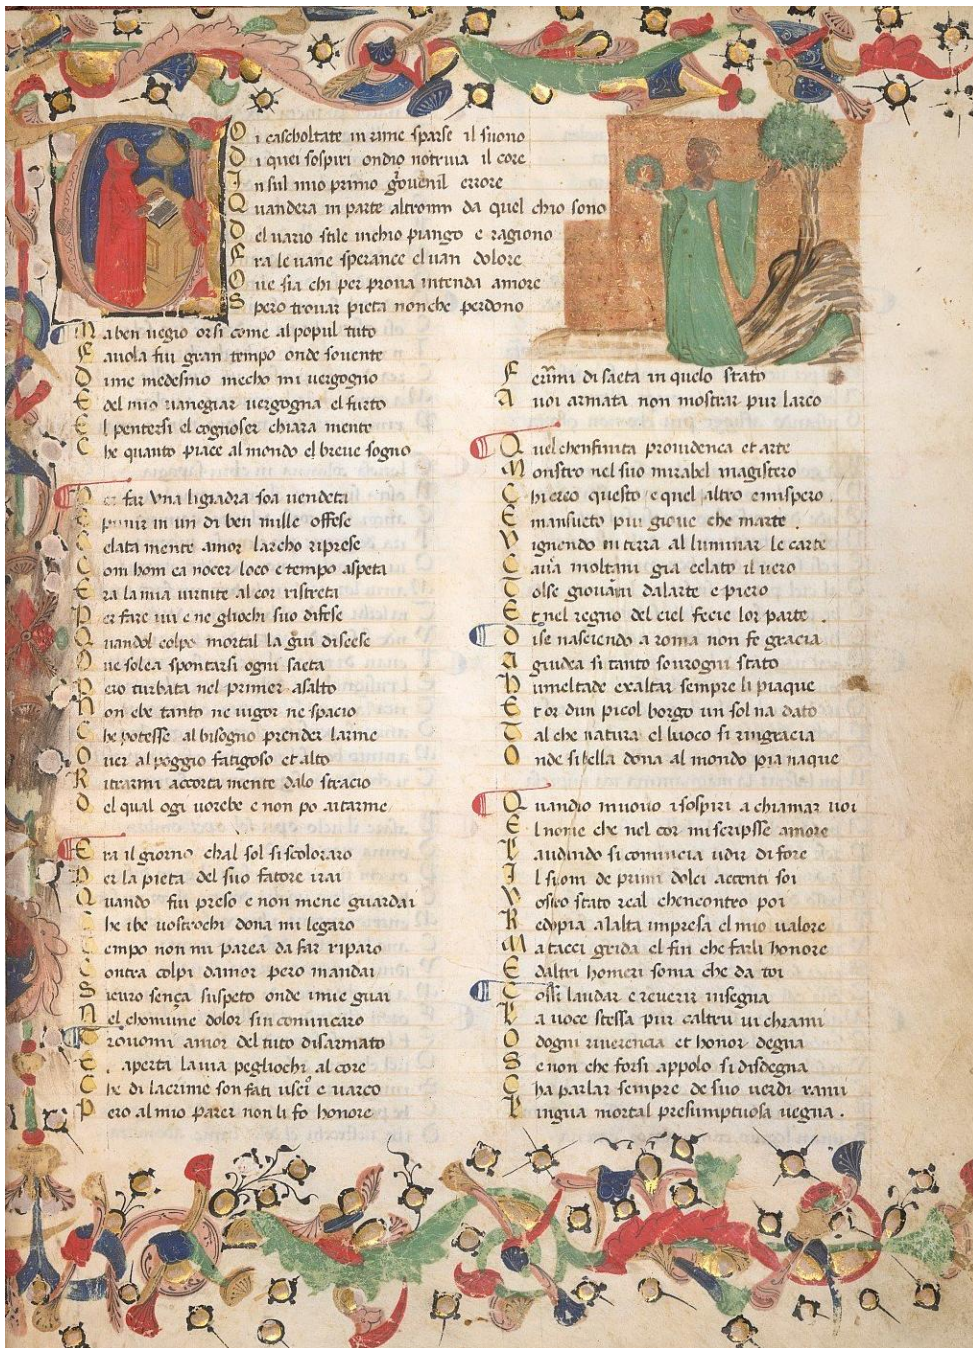 Oi cascholtate in rime sparse il suono
Di quei sospiri ondio notriva il core
In sul mio primo giovenil errore
Quandera in parte altromm da quel chio sono
Del vario stile inchio piango e ragiono
Fra le vane sperance el van dolore
Ove sia chi per prova intenda amore
Spero trovar pieta nonche perdono
Ma ben vegio or si come al popul tuto
Favola fui gran tempo onde sovente
Di me medesmo mecho mi vergogno
E del mio vanegiar vergogna el furto
El pentersi el cognoser chiara mente
Che quanto piace al mondo el breve sogno
Per far una ligiadra soa vendeta
E punir in un di ben mille offese
Celata mente amor larcho riprese
Com hom ca nocer loco e tempo aspeta
Era la mia virtute al cor ristreta
Per fare ivi e ne gliochi suo difese
Quandol colpo mortal la giu discese
Ove solea spontarsi ogni saeta
Pero turbata nel primer asalto
Non ebe tanto ne vigor ne spacio
Che potesse al bisogno prender larme
Over al poggio fatigoso et alto
Ritrarmi accorta mente dalo stracio
Del qual ogi vorebe e non po aitarme
Era il giorno chal sol si scoloraro
Per la pieta del suo fatore i rai
Quando fui preso e non mene guardai
Che ibe vostrochi dona mi legaro
Tempo non mi parea da far riparo
Contra colpi damor pero mandai
Sicuro sença suspeto onde imie guai
Nel chomune dolor sincominçaro
Trovomi amor del tuto disarmato
E aperta la via pegliochi al core
Che di lacrime son fati uscio e varco
Pero al mio parer non li fo honore
Ferirmi di saeta in quelo stato
A voi armata non mostrar pur larco
Quel chenfinita providenca et arte
Monstro nel suo mirabel magistero
Chi creo questo e quel altro emispero
E mansueto piu giove che marte
Vignendo in terra al luminar le carte
Cavia moltani gia celato il vero
Tolse giovani dalarte e piero
Et nel regno del ciel fecie lor parte
Di se nasciendo a roma non fe gracia
A giudea si tanto sovrogni stato
Humeltade exaltar sempre li piaque
Et or dun picol borgo un sol na dato
Tal che natura el luoco si ringracia
Onde si bella dona al mondo pia naque
Quandio muovo i sospiri a chiamar voi
El nome che nel cor mi scripsse amore
Laudando si comincia udir di fore
Il suom de primi dolci accenti soi
Vostro stato real chencontro poi
Redopia alalta impresa el mio valore
Ma tacci grida el fin che farli honore
E daltri homeri soma che da toi
Cossi laudar e reverir insegna
La voce stessa pur caltru vi chiami
O dogni riverencia et honor degna
Se non che forsi appolo si disdegna
Cha parlar sempre de suo verdi rami
Lingua mortal presumptuosa vegna .